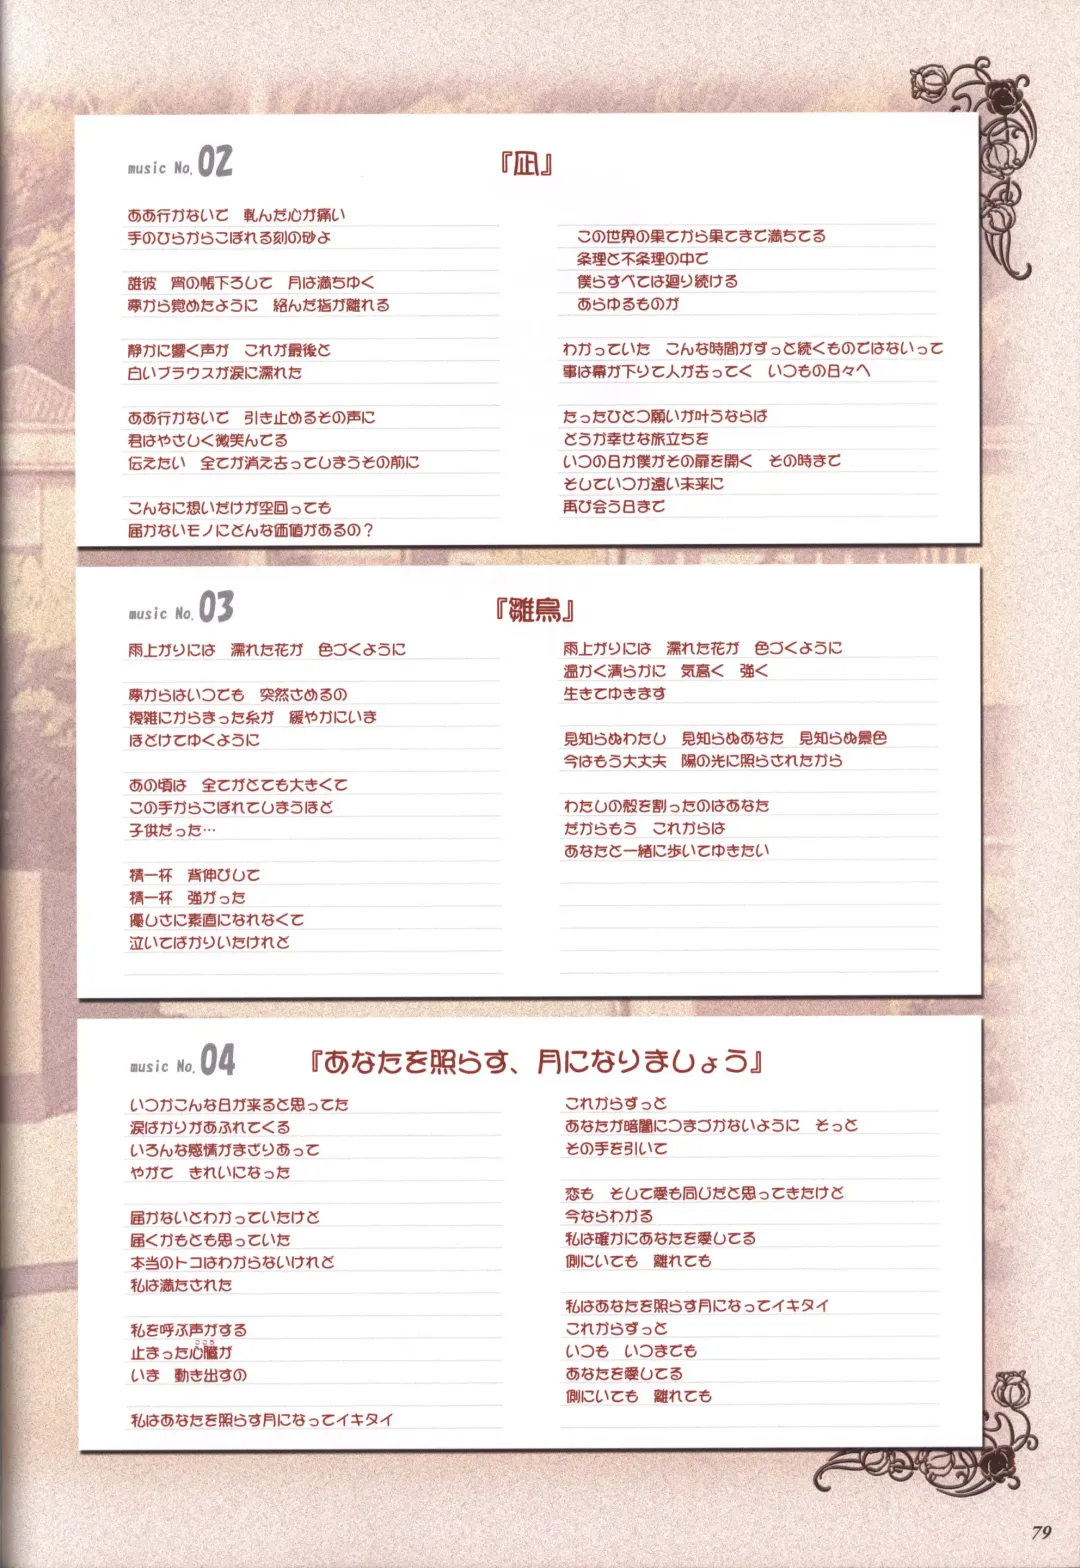 music No.02
『凪』
ああ行かないで　軋んだ心が痛い
手のひらからこぼれる刻の砂よ
誰彼　宵の帳下ろして　月は満ちゆく
夢から覚めたように　絡んだ指が離れる
静かに響く声が　これが最後と
白いブラウスが涙に濡れた
ああ行かないで　引き止めるその声に
君はやさしく微笑んでる
伝えたい　全てが消え去ってしまうその前に
こんなに想いだけが空回っても
届かないモノにどんな価値があるの？
この世界の果てから果てまで満ちてる
条理と不条理の中で
僕らすべては廻り続ける
あらゆるものが
わかっていた　こんな時間がずっと続くものではないって
事は幕が下りて人が去ってく　いつもの日々へ
たったひとつ願いが叶うならば
どうか幸せな旅立ちを
いつの日か僕がその扉を開く　その時まで
そしていつか遠い未来に
再び会う日まで
music No.03
『雛鳥』
雨上がりには　濡れた花が　色づくように
夢からはいつでも　突然さめるの
複雑にからまった糸が　緩やかにいま
ほどけてゆくように
あの頃は　全てがとても大きくて
この手からこぼれてしまうほど
子供だった…
精一杯　背伸びして
精一杯　強がった
優しさに素直になれなくて
泣いてばかりいたけれど
雨上がりには　濡れた花が　色づくように
温かく清らかに　気高く　強く
生きてゆきます
見知らぬわたし　見知らぬあなた　見知らぬ景色
今はもう大丈夫　陽の光に照らされたから
わたしの殻を割ったのはあなた
だからもう　これからは
あなたと一緒に歩いてゆきたい
music No.04
『あなたを照らす、月になりましょう』
いつかこんな日が来ると思ってた
涙ばかりがあふれてくる
いろんな感情がまざりあって
やがて　きれいになった
届かないとわかっていたけど
届くかもとも思っていた
本当のトコはわからないけれど
私は満たされた
私を呼ぶ声がする
こころ
止まった心臓が
いま　動き出すの
私はあなたを照らす月になってイキタイ
これからずっと
あなたが暗闇につまづかないように　そっと
その手を引いて
恋も　そして愛も同じだと思ってきたけど
今ならわかる
私は確かにあなたを愛してる
側にいても　離れても
私はあなたを照らす月になってイキタイ
これからずっと
いつも　いつまでも
あなたを愛してる
側にいても　離れても
79